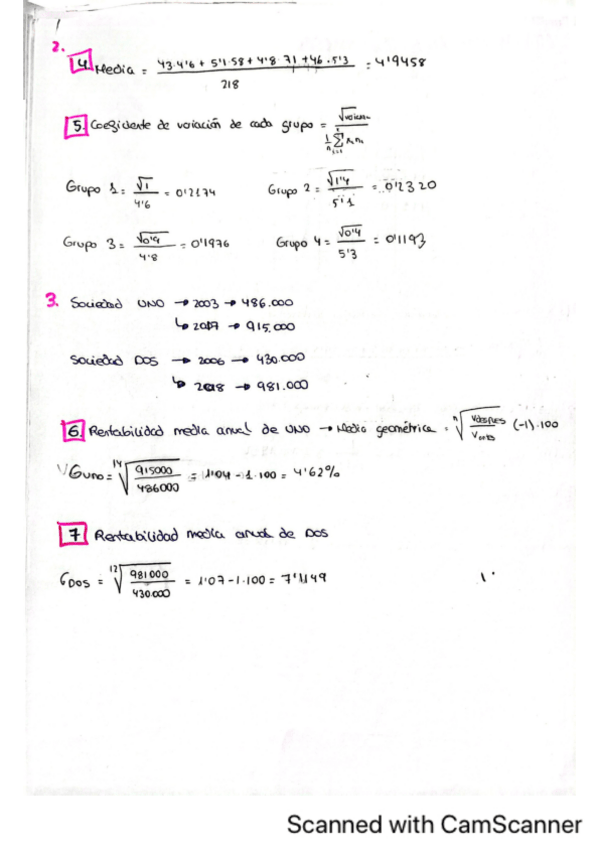 2.
4. Media = 43·4'6 + 5'1·58 + 4'8·71 + 46·5'3 / 218 = 4'9458
5. Coeficiente de variación de cada grupo = √varianza / 1/n Σ xi ni
Grupo 1 = √1 / 4'6 = 0'2174 Grupo 2 = √1'4 / 5'1 = 0'2320
Grupo 3 = √0'9 / 4'8 = 0'1976 Grupo 4 = √0'4 / 5'3 = 0'1193
3. Sociedad UNO → 2003 → 486.000
↳ 2017 → 915.000
Sociedad DOS → 2006 → 430.000
↳ 2018 → 981.000
6. Rentabilidad media anual de UNO → Media geométrica = ⁿ√ Vdespues / Vantes (-1)·100
G UNO = ¹⁴√ 915000 / 486000 = 1'04 - 1·100 = 4'62%
7 Rentabilidad media anual de DOS
G DOS = ¹²√ 981000 / 430.000 = 1'07 - 1·100 = 7'1149
Scanned with CamScanner